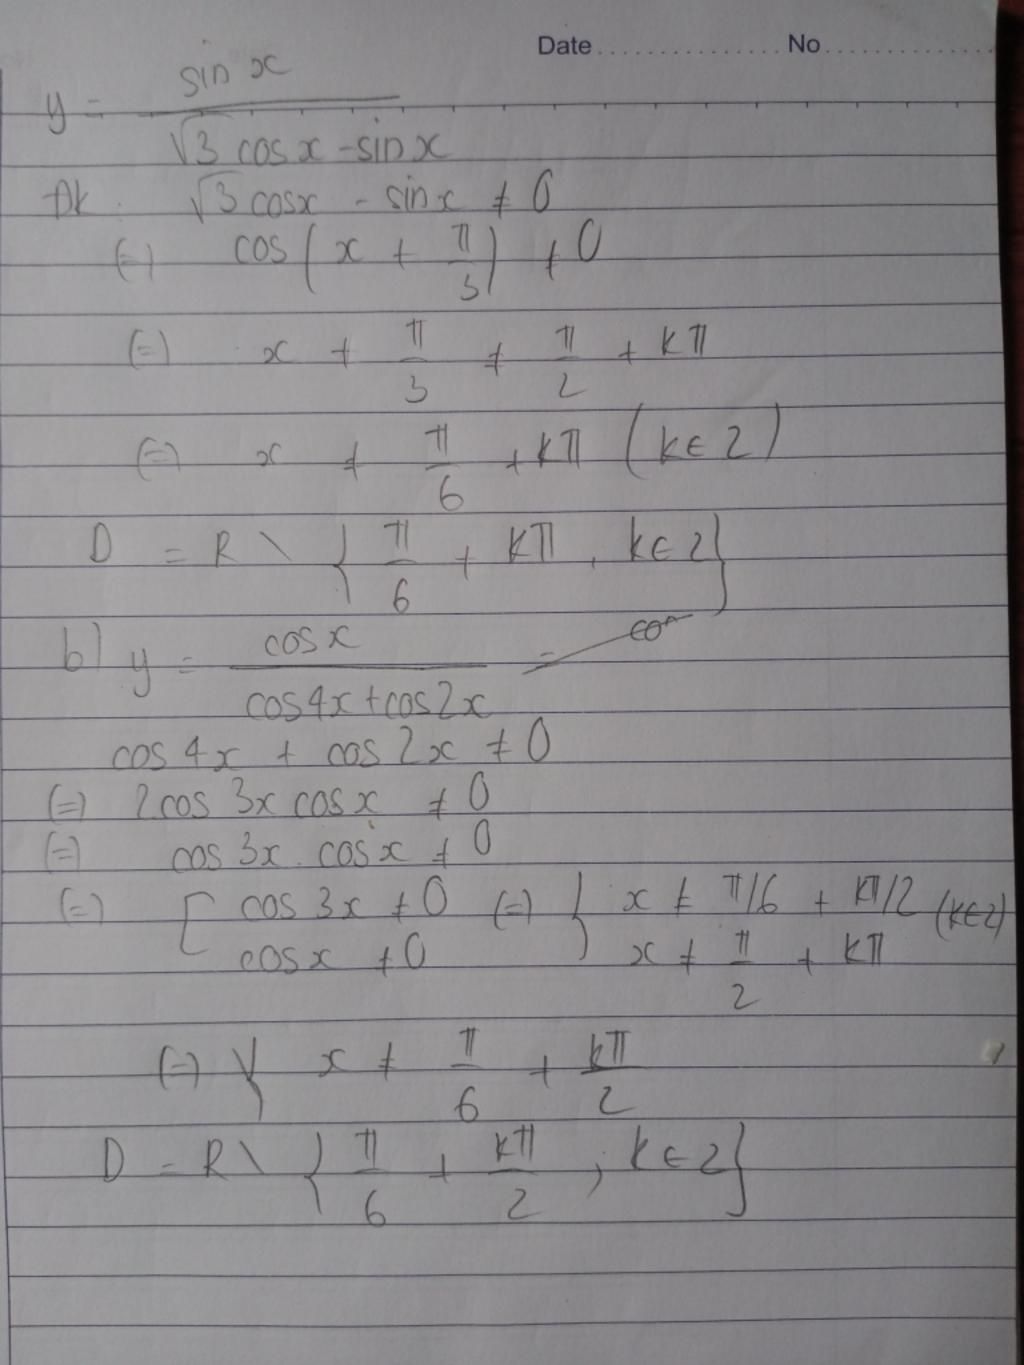 Date .................... No ....................
y = sin x / √3 cos x - sin x
Đk: √3 cosx - sin x ≠ 0
(=) cos(x + π/3) ≠ 0
(=) x + π/3 ≠ π/2 + kπ
(=) x ≠ π/6 + kπ (k∈Z)
D = R \ { π/6 + kπ, k∈Z }
b) y = cos x / cos4x + cos2x
cos 4x + cos 2x ≠ 0
(=) 2cos 3x cosx ≠ 0
(=) cos 3x . cos x ≠ 0
(=) [ cos 3x ≠ 0 (=) { x ≠ π/6 + kπ/2 (k∈Z)
cosx ≠ 0 x ≠ π/2 + kπ
(=) { x ≠ π/6 + kπ/2
D = R \ { π/6 + kπ/2 , k∈Z }